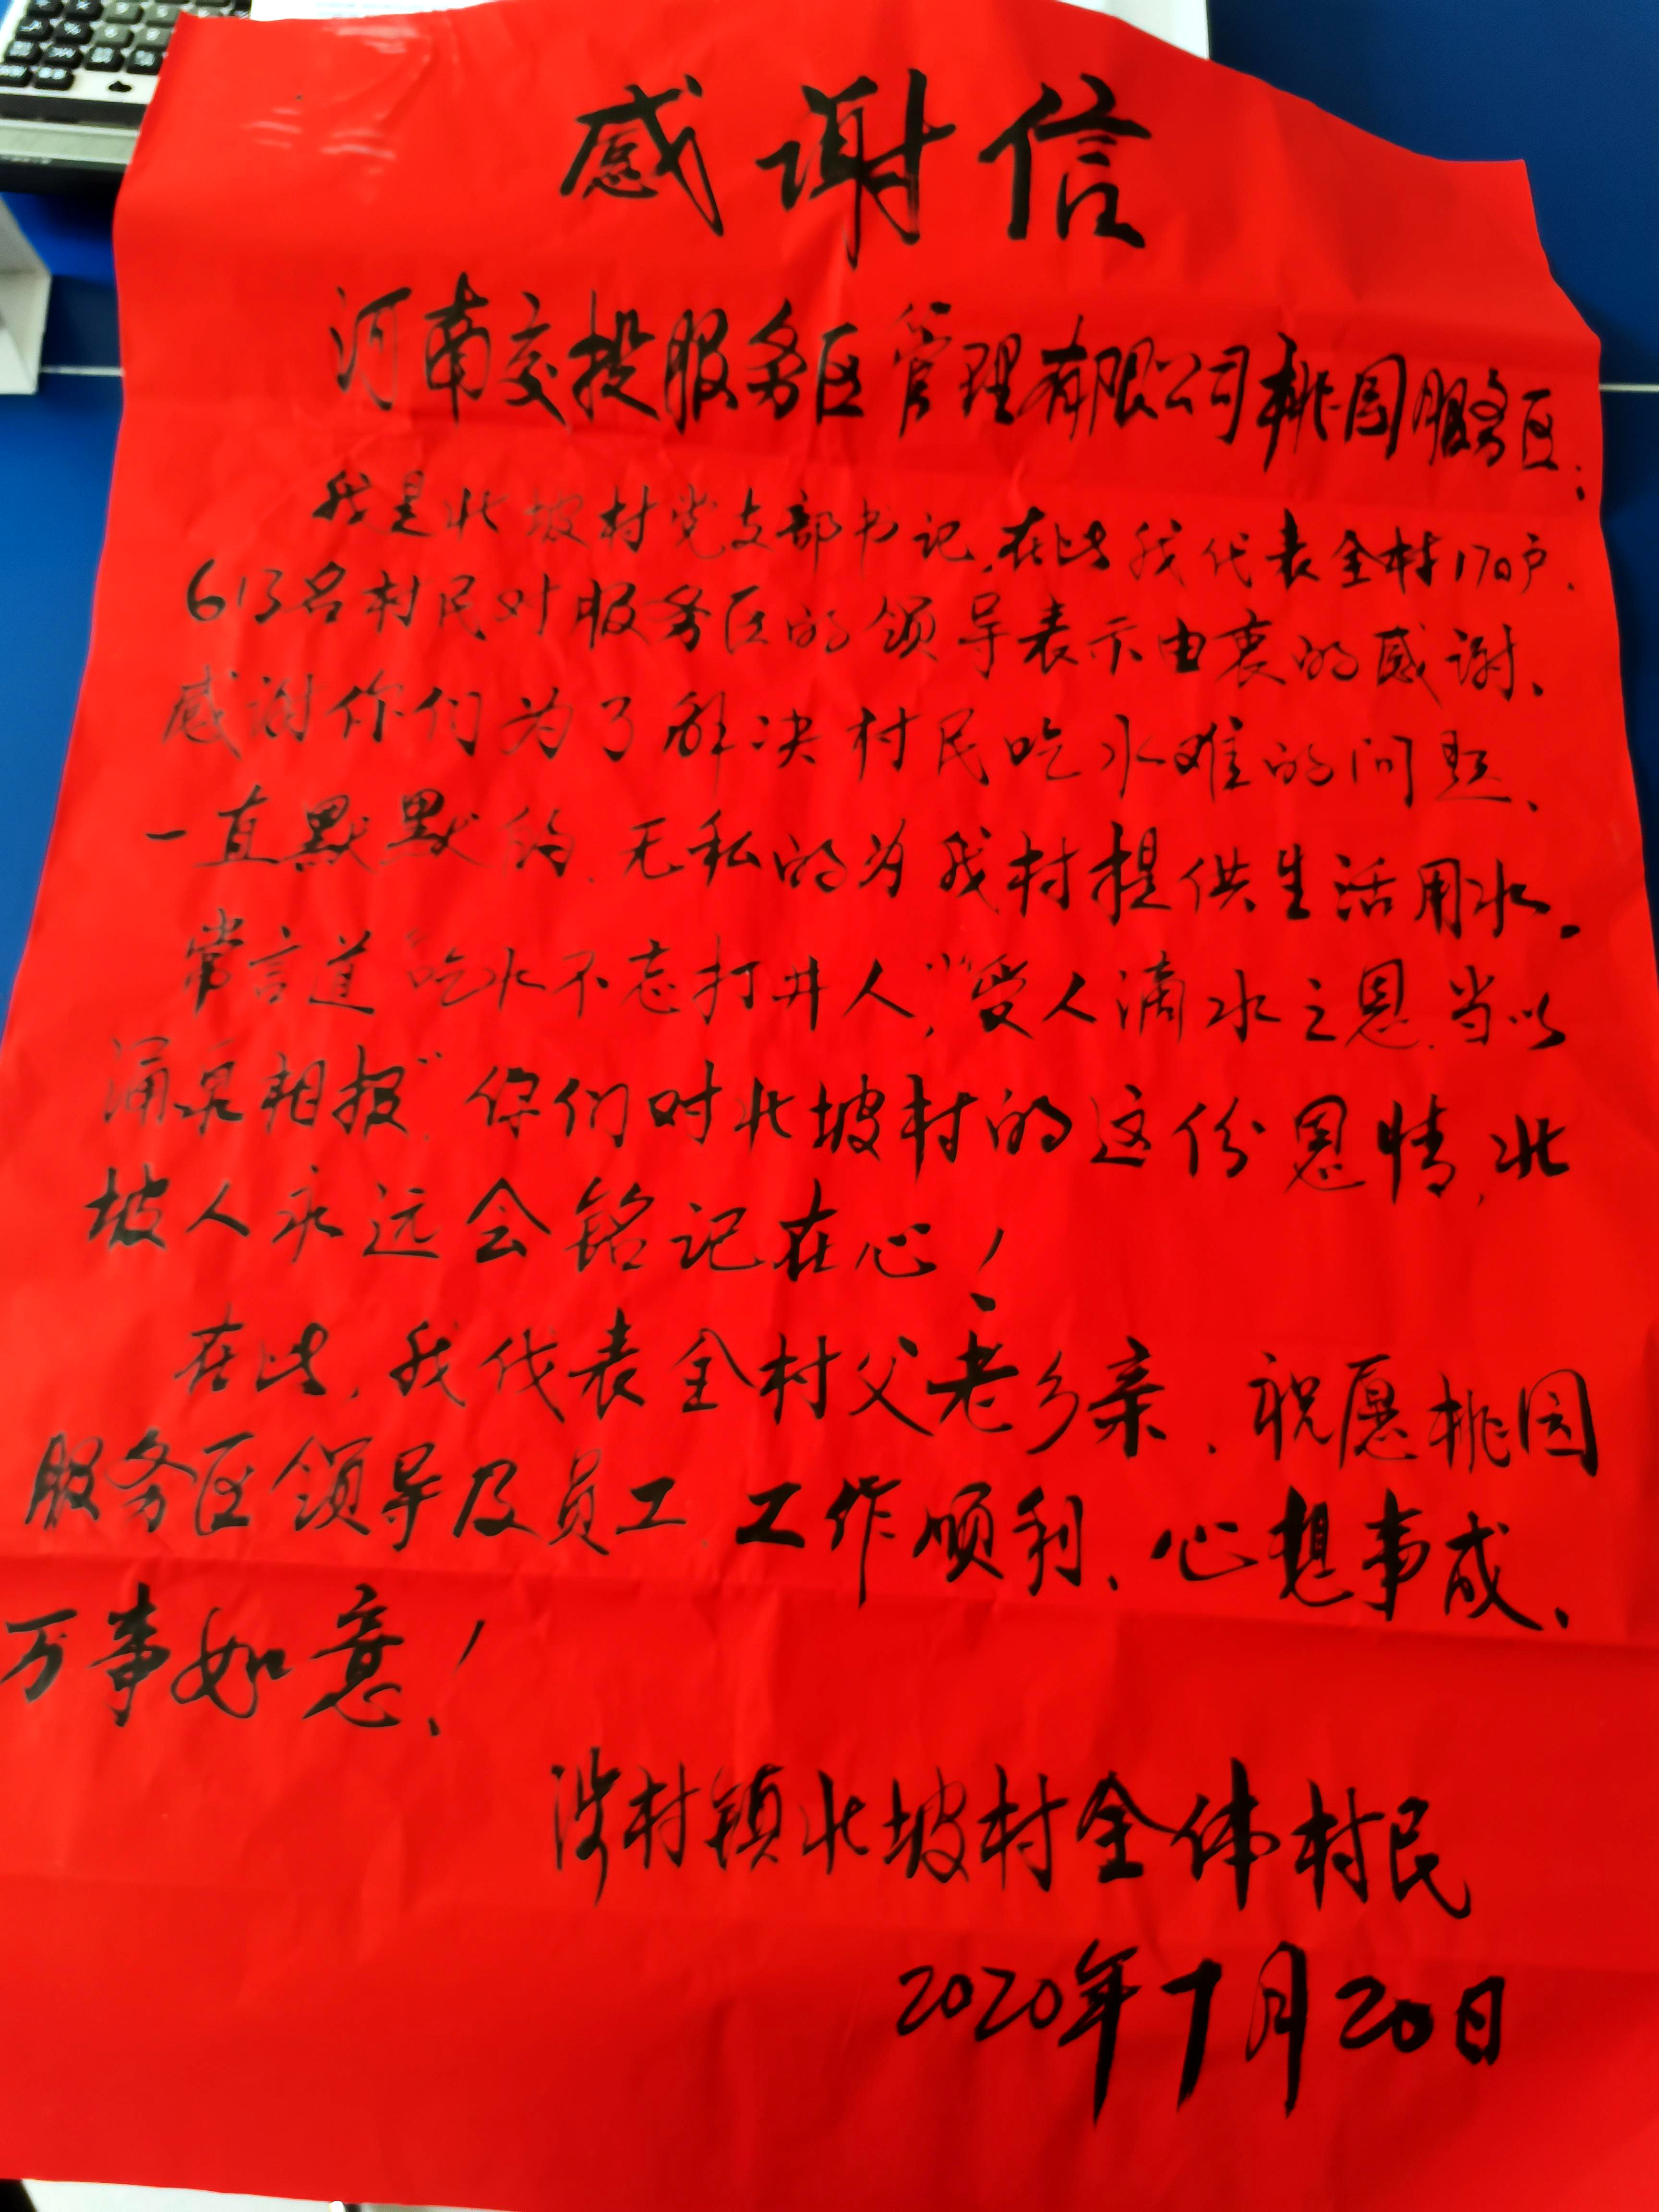 感谢信
河南交投服务区管理有限公司桃园服务区:
我是北坡村党支部书记,在此我代表全村170户、
613名村民对服务区的领导表示由衷的感谢、
感谢你们为了解决村民吃水难的问题、
一直默默的、无私的为我村提供生活用水。
常言道“吃水不忘打井人,”“受人滴水之恩,当以
涌泉相报”.你们对北坡村的这份恩情,北
坡人永远会铭记在心!
在此,我代表全村父老乡亲、祝愿桃园
服务区领导及员工、工作顺利、心想事成、
万事如意!
涉村镇北坡村全体村民
2020年7月20日